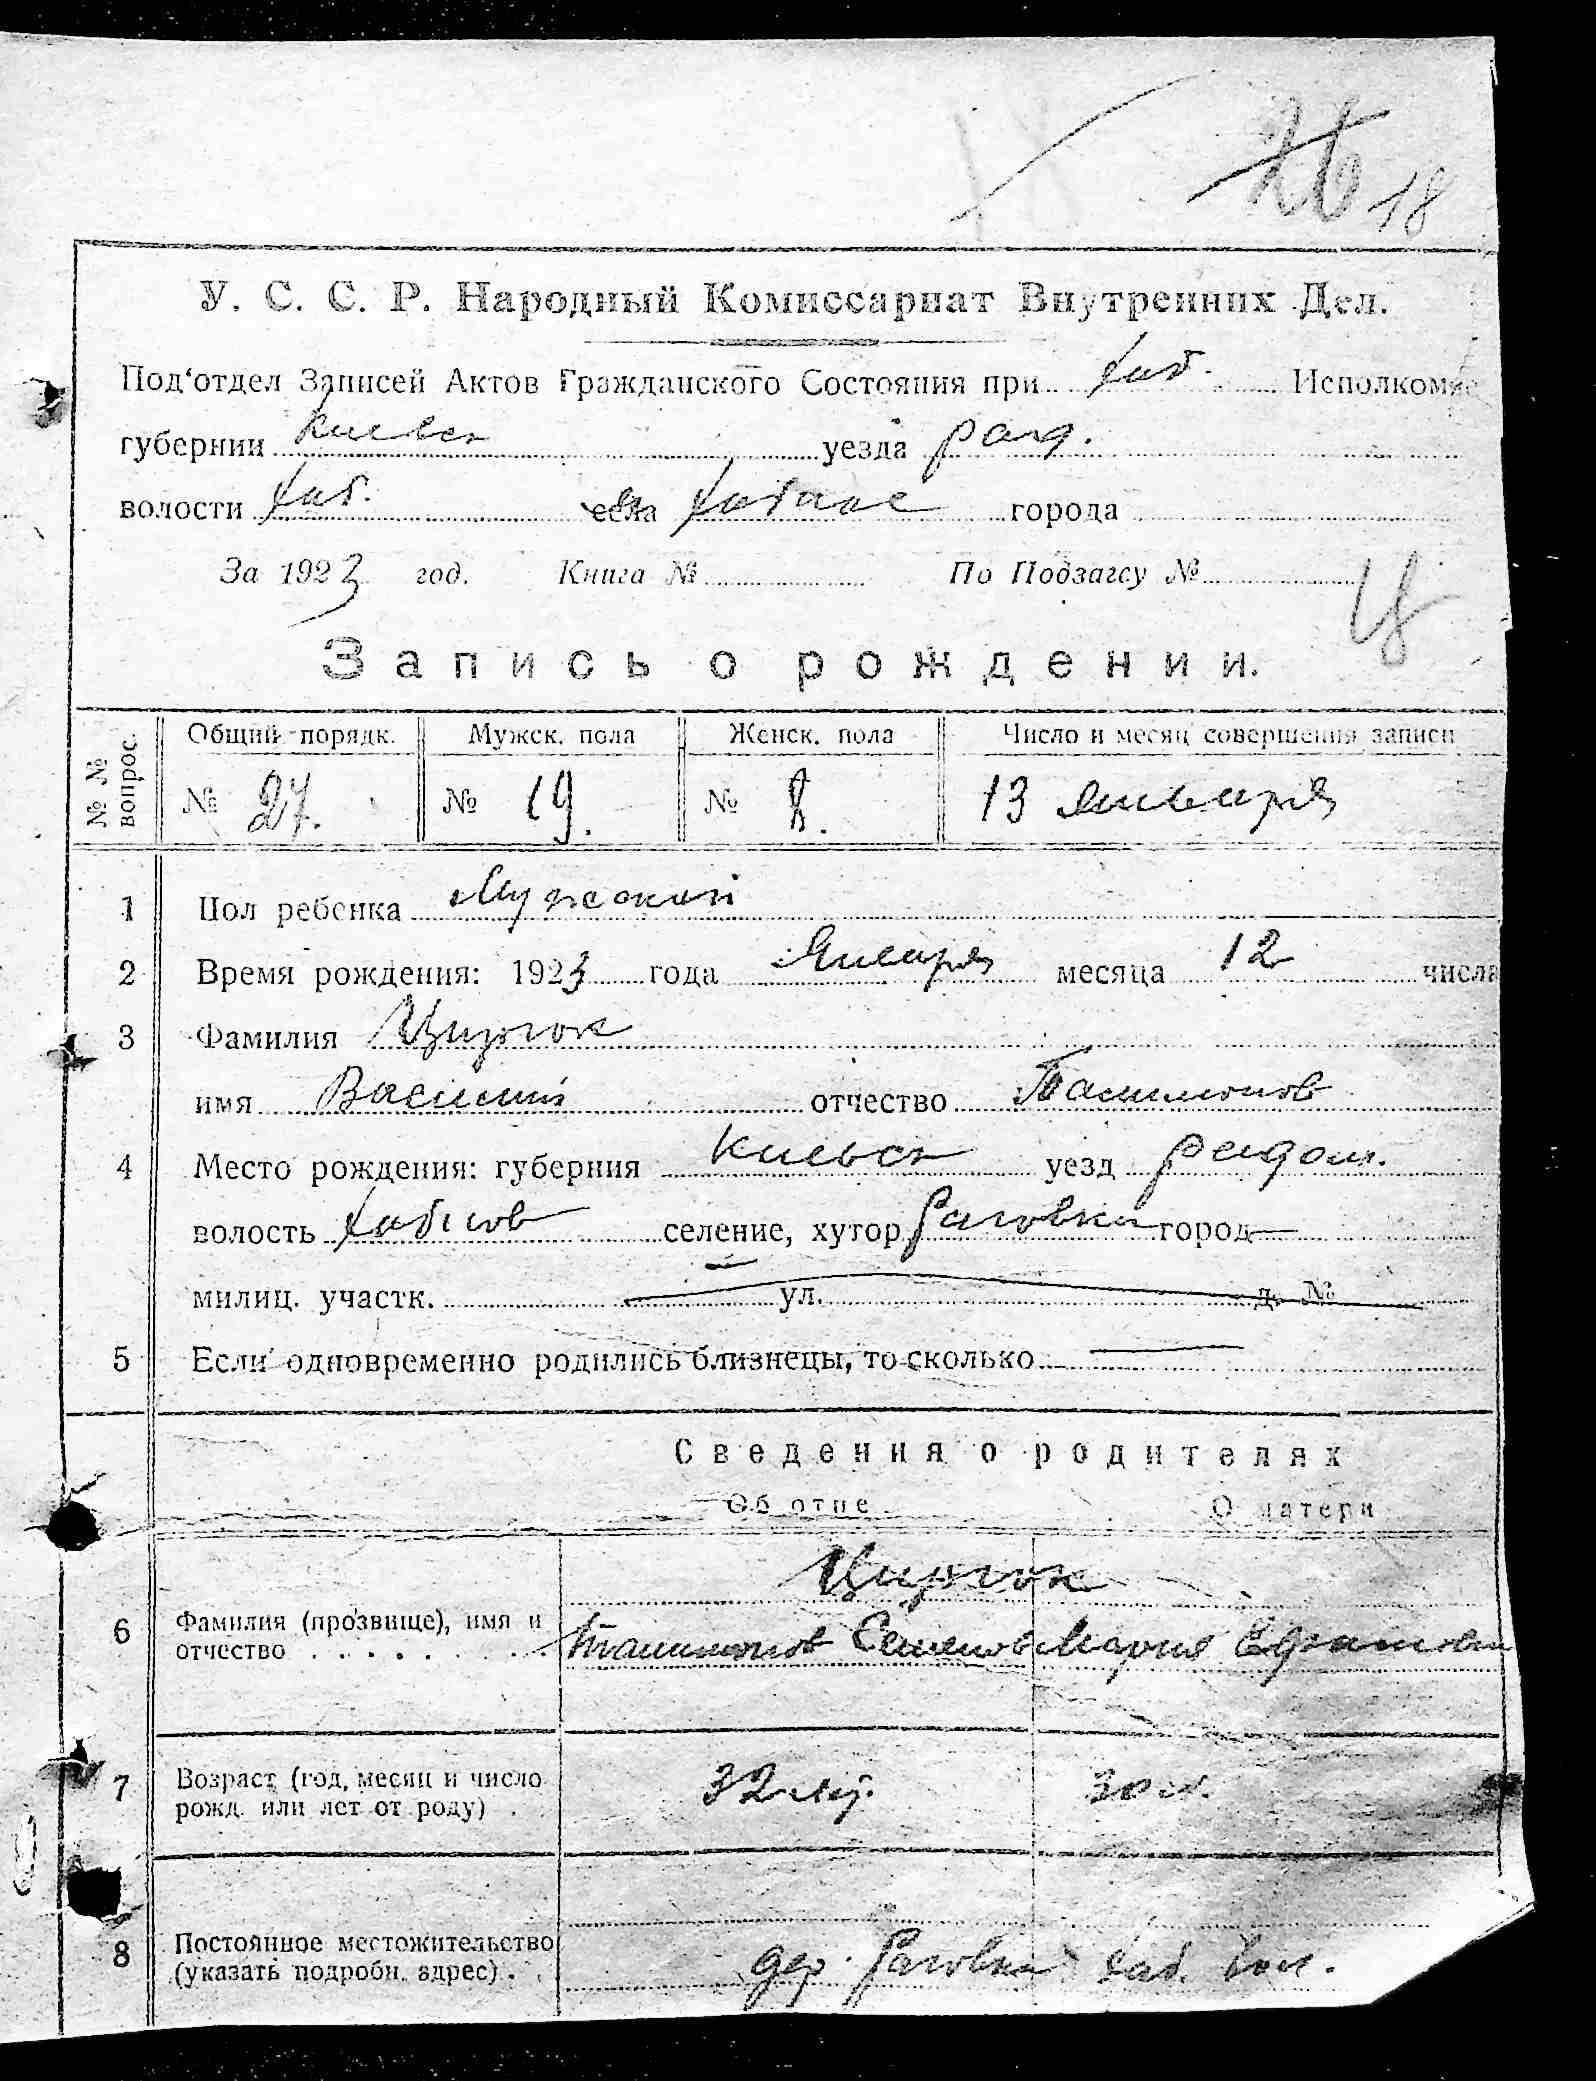 26 18
У. С. С. Р. Народный Комиссариат Внутренних Дел.
Под‘отдел Записей Актов Гражданского Состояния при Хаб. Исполкоме
губернии Киевск уезда рад.
волости Хаб. села Хабное города
За 1923 год. Книга № По Подзагсу №
Ц
Запись о рождении.
№ № вопрос. Общий порядк. Мужск. пола Женск. пола Число и месяц совершения записи
№ 27. № 19. № 8. 13 января
1 Пол ребенка Мужской
2 Время рождения: 1923 года Января месяца 12 числа
3 Фамилия Цирюк
имя Василий отчество
4 Место рождения: губерния Киевск уезд радом.
волость Хабнов селение, хутор Раговка город
милиц. участк. ул. д. №
5 Если одновременно родились близнецы, то сколько
Сведения о родителях
Об отце О матери
Цирюк
6 Фамилия (прозвище), имя и
отчество Семенов Мария
7 Возраст (год, месяц и число
рожд. или лет от роду) 32 30 л.
8 Постоянное местожительство
(указать подробн. адрес) дер. Раговка Хаб. вол.